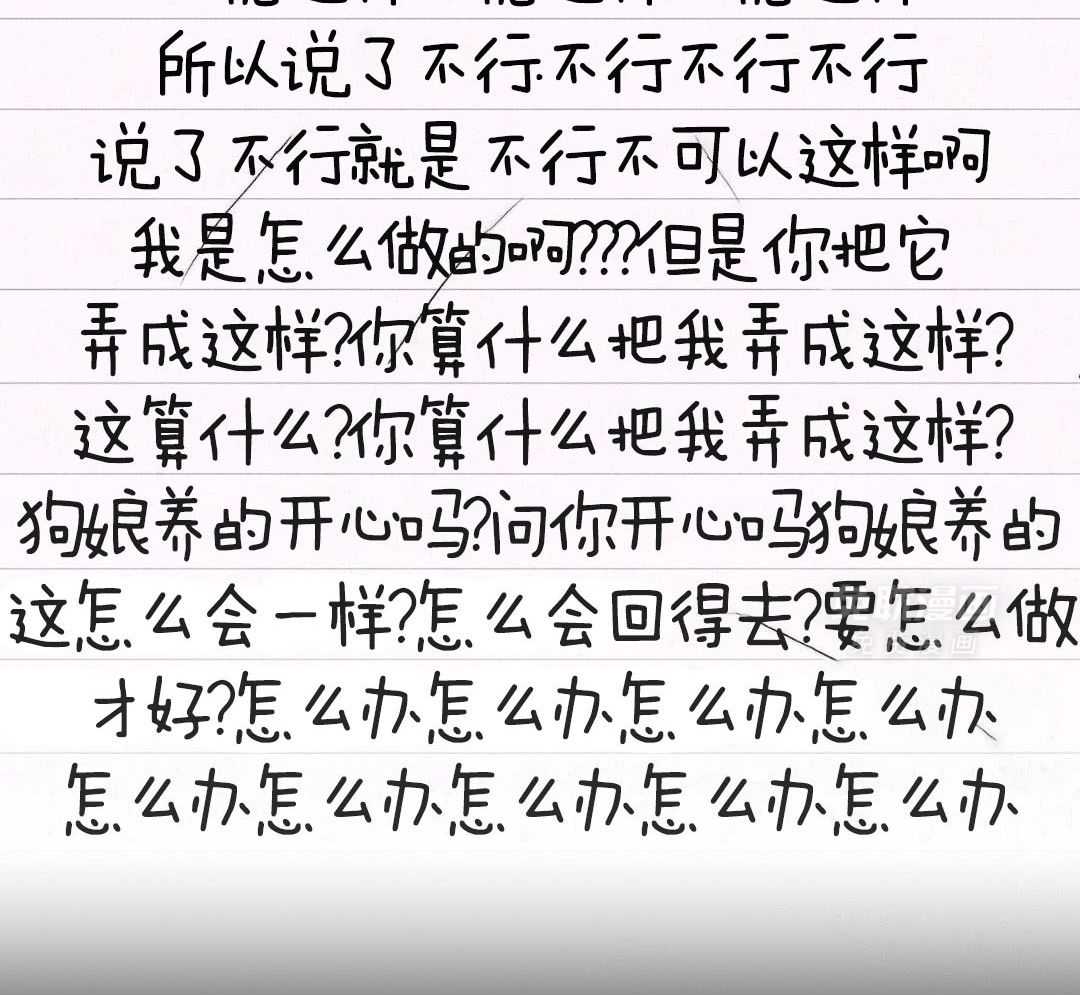 所以说了不行.不行不行不行
说了不行就是不行不可以这样啊
我是怎么做的啊???但是你把它
弄成这样?你算什么把我弄成这样?
这算什么?你算什么把我弄成这样?
狗娘养的开心吗?问你开心吗狗娘养的
这怎么会一样?怎么会回得去?要怎么做
才好?怎么办怎么办怎么办怎么办
怎么办怎么办怎么办怎么办怎么办